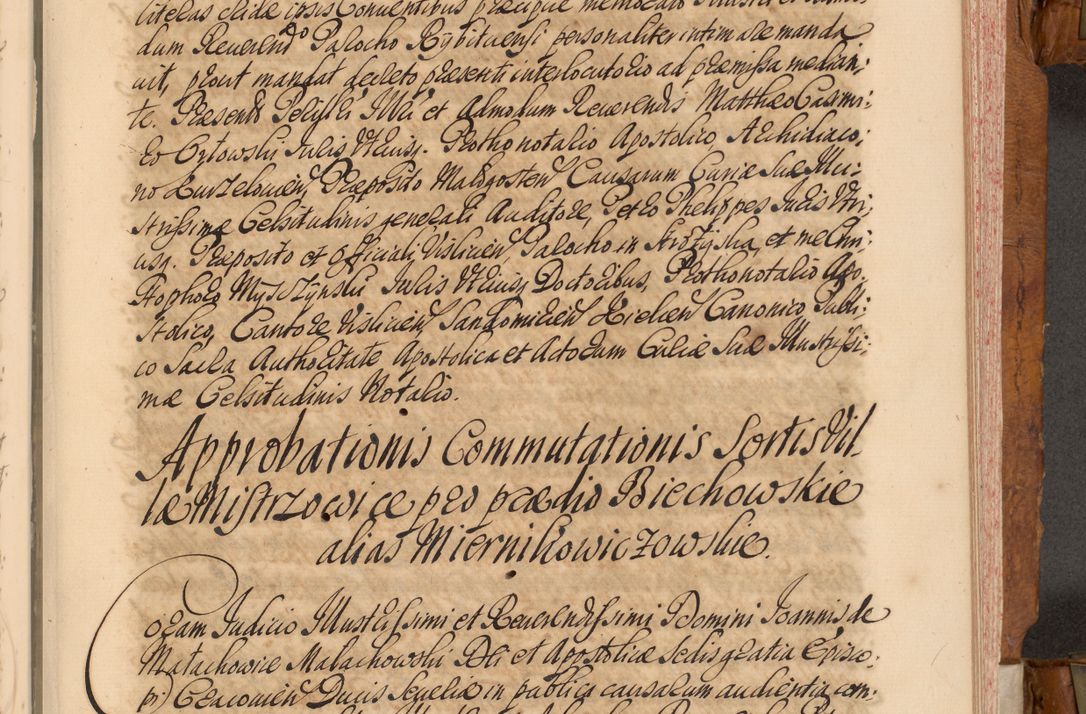 literas eadé ipsis Conventibus præcipue memorato
dum Reverendo Parocho Rybituensi personaliter intimare manda
vit, prout mandat decreto præsenti interlocutorio ad præmissa median:
te. Præsenti Perillri Mei et Admodum Reverendis Matthæo Casimi:
ro Orłowski Juris Utriusq. Prothonotario Apostolico, Archidiaco:
no Kurzelouien, Præposito Małogosten, Causarum Curiæ Suæ Illu:
strissimæ Celsitudinis generali Auditore, Petro Philippes Juris Utri:
usq. Præposito et Officiali Vislicien, Parocho in Strożyska, et me Chri:
stophoro Myszczynski Juris Utriusq Doctoribus, Prothonotario Apo:
stolico, Cantore Vislicien, Sandomirien, Kielcen Canonico Publi:
co Sacra Authoritate Apostolica et Actorum Curiæ Suæ Illustrissi:
mæ Celsitudinis Notario.
Approbationis Commutationis Sortis Vil
læ Mistrzowice pro prædio Biechowskie
alias Miernikowiczowskie.
Coram Judicio Illustrissimi et Reverendissimi Domini Joannis de
Małachowice Małachowski Dei et Apostolicæ Sedis gratia Episco:
pi Cracovien, Ducis Severiæ in publica causarum audientia com: